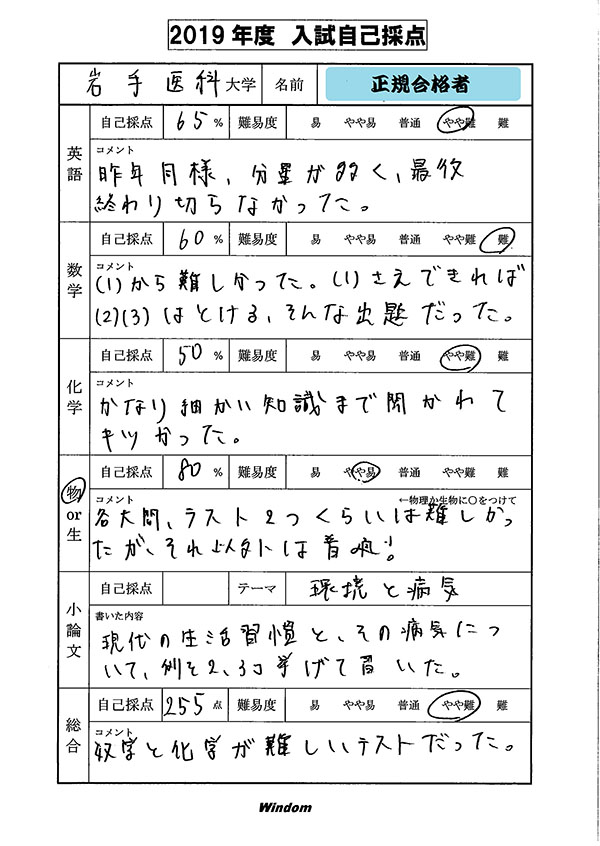 2019年度 入試自己採点
岩手医科大学 名前 正規合格者
英語 自己採点 65% 難易度 易 やや易 普通 やや難 難
コメント
昨年同様、分量が多く、最後
終わり切らなかった。
数学 自己採点 60% 難易度 易 やや易 普通 やや難 難
コメント
(1)から難しかった。(1)さえできれば
(2)(3)はとける、そんな出題だった。
化学 自己採点 50% 難易度 易 やや易 普通 やや難 難
コメント
かなり細かい知識まで聞かれて
キツかった。
物or生 自己採点 80% 難易度 易 やや易 普通 やや難 難
コメント ←物理か生物に○をつけて
各大問、ラスト2つくらいは難しかっ
たが、それ以外は普通!
小論文 自己採点 テーマ 環境と病気
書いた内容
現代の生活習慣と、その病気につ
いて、例を2、3コ挙げて書いた。
総合 自己採点 255点 難易度 易 やや易 普通 やや難 難
コメント
数学と化学が難しいテストだった。
Windom